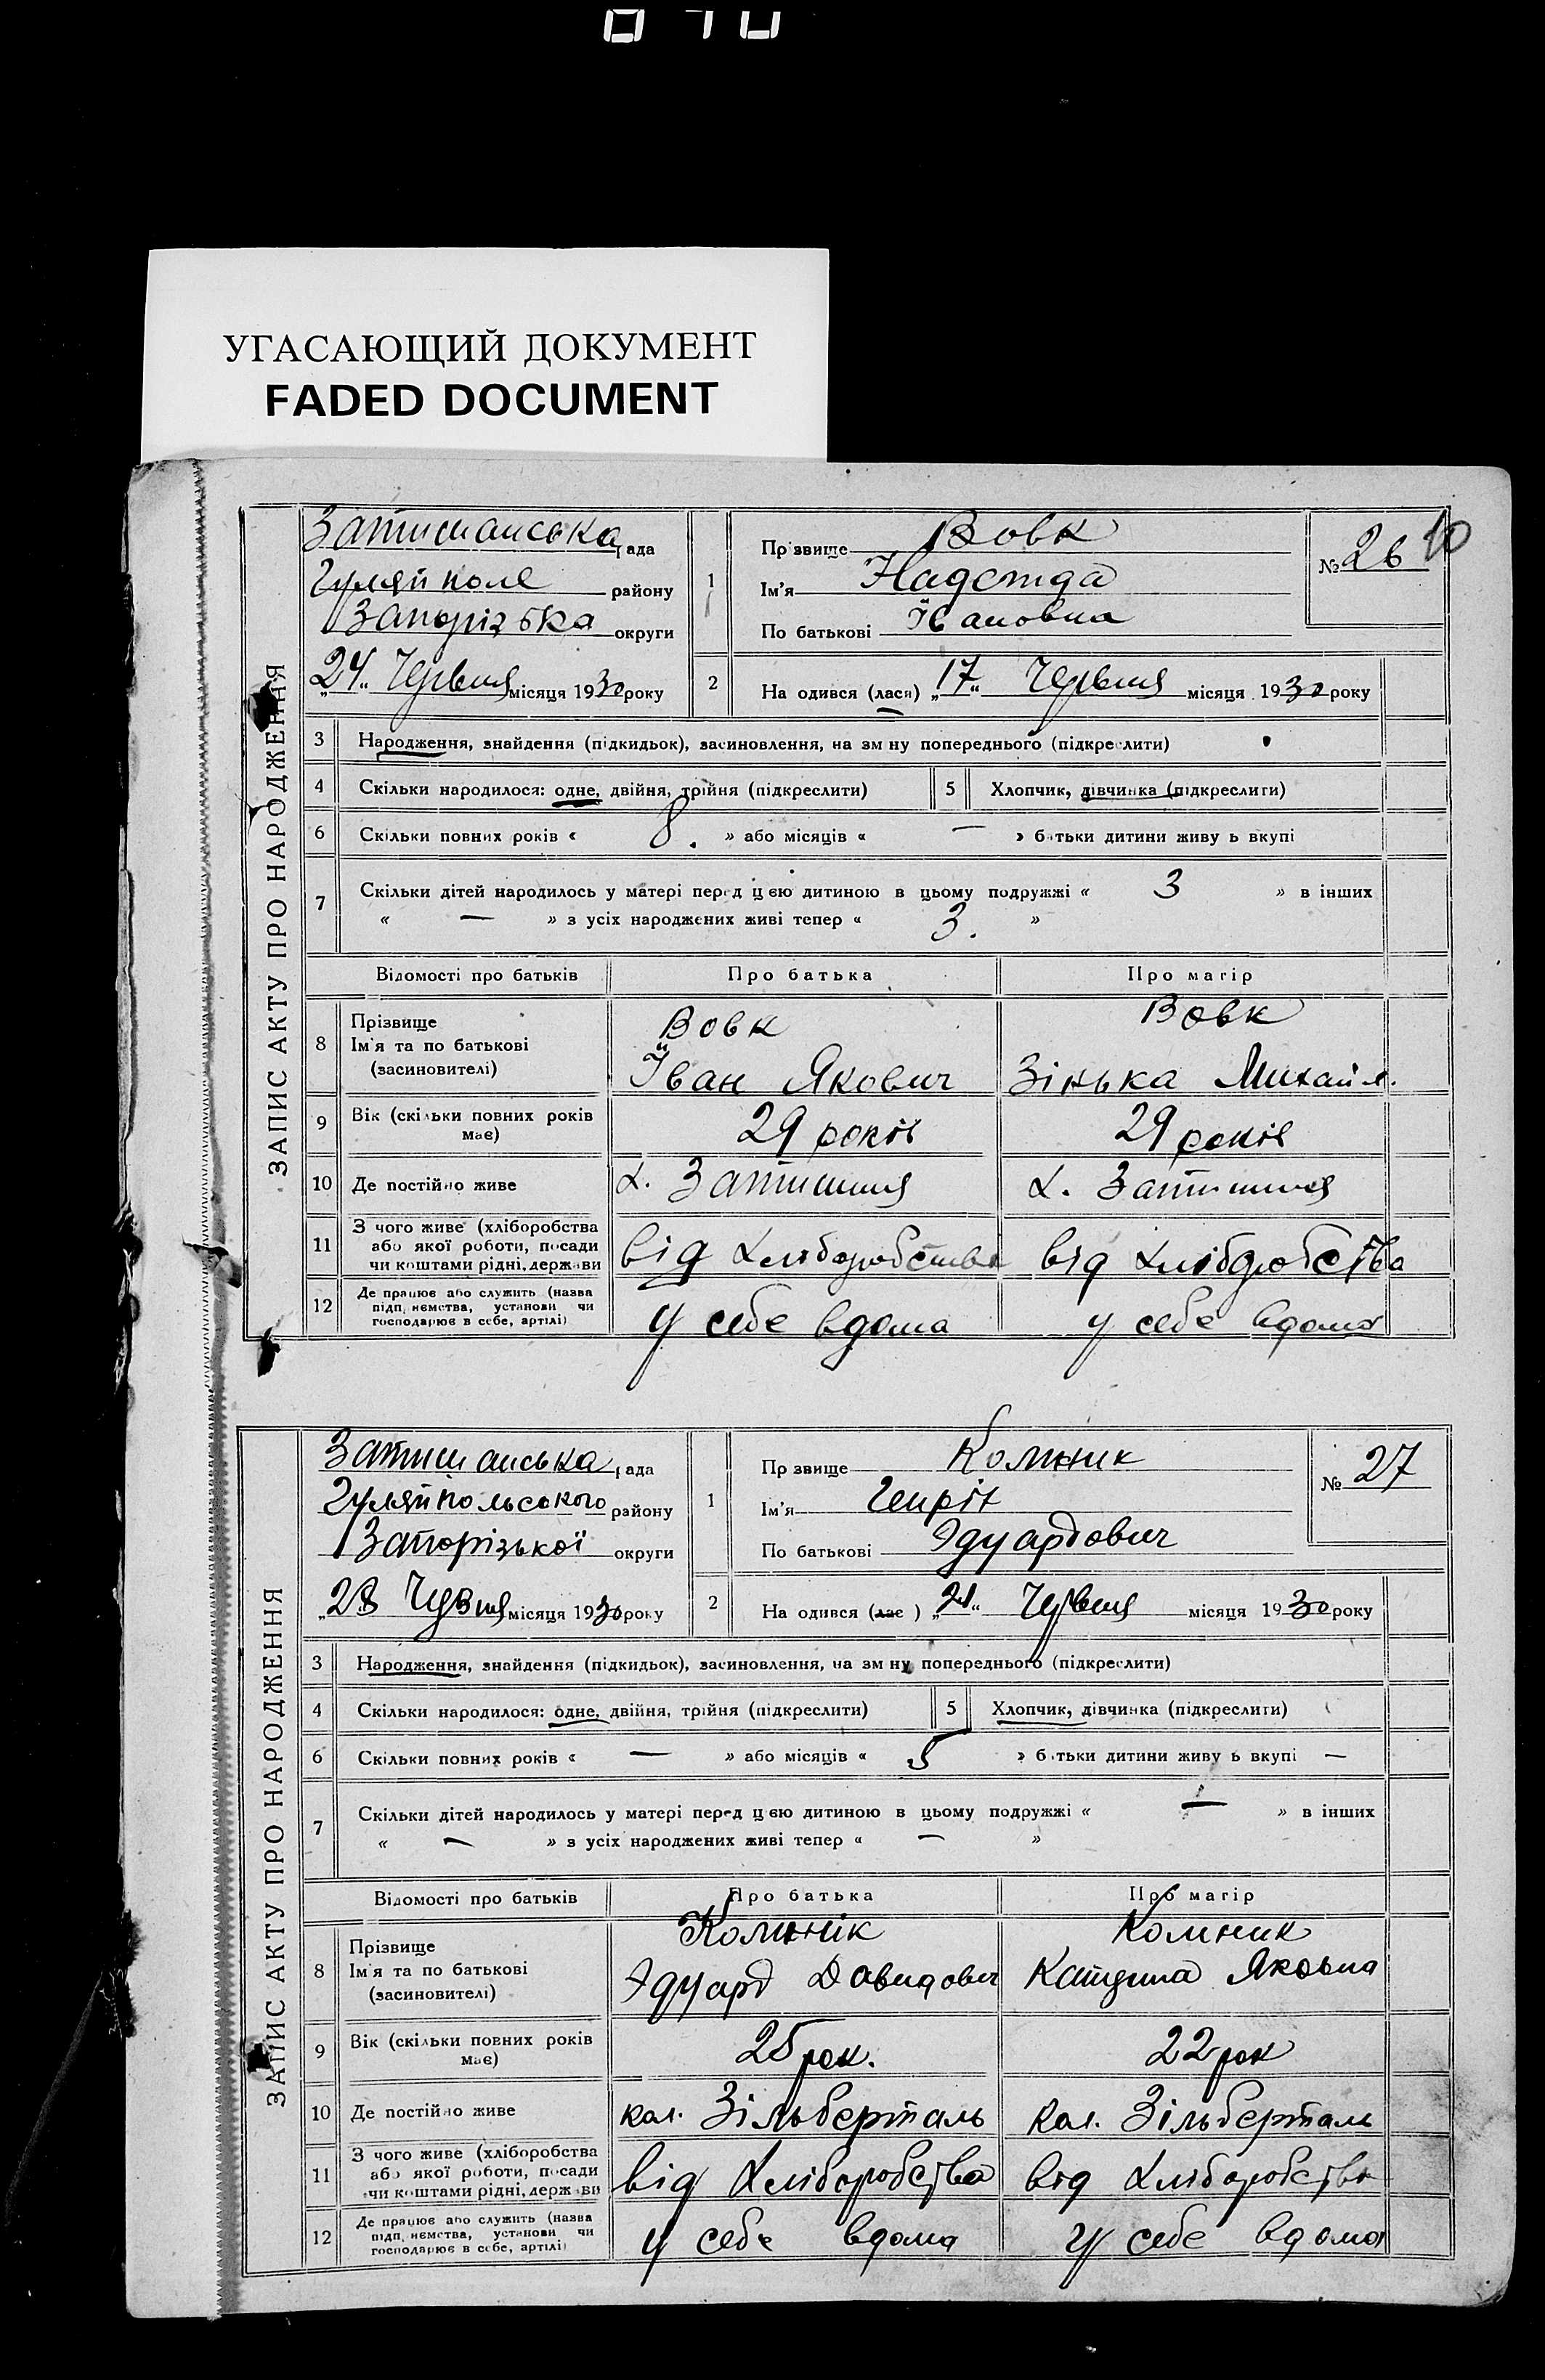 УГАСАЮЩИЙ ДОКУМЕНТ
FADED DOCUMENT
ЗАПИС АКТУ ПРО НАРОДЖЕННЯ
Затишанська рада
Гуляй поле району
Запорізька округи
„24“ Червня місяця 1930 року
1
Прізвище Вовк
Ім'я Надежда
По батькові Івановна
№ 26
10
2
На одився (лася) „17“ Червня місяця 1930 року
3 Народження, знайдення (підкидьок), засиновлення, на зм ну попереднього (підкреслити)
4 Скільки народилося: одне, двійня, трійня (підкреслити) 5 Хлопчик, дівчинка (підкреслити)
6 Скільки повних років « 8. » або місяців « — » батьки дитини живу ь вкупі
7 Скільки дітей народилось у матері перед цією дитиною в цьому подружжі « 3 » в інших
« — » з усіх народжених живі тепер « 3. »
Відомості про батьків Про батька Про матір
8 Прізвище
Ім'я та по батькові
(засиновителі)
Вовк
Іван Якович
Вовк
Зінька Михайл.
9 Вік (скільки повних років
має)
29 років 29 років
10 Де постійно живе х. Затишшя х. Затишшя
11 З чого живе (хліборобства
або якої роботи, посади
чи коштами рідні, держави
від хліборобства від хліборобства
12 Де працює або служить (назва
підп, иємства, установи чи
господарює в себе, артілі)
у себе вдома у себе вдома
ЗАПИС АКТУ ПРО НАРОДЖЕННЯ
Затишанська рада
Гуляйпольського району
Запорізької округи
„28 Червня місяця 1930 року
1
Пр звище Колиник
Ім'я Генріх
По батькові Эдуардович
№ 27
2
На одився (лас ) „21“ Червня місяця 1930 року
3 Народження, знайдення (підкидьок), засиновлення, на зм ну попереднього (підкреслити)
4 Скільки народилося: одне, двійня, трійня (підкреслити) 5 Хлопчик, дівчинка (підкреслити)
6 Скільки повних років « — » або місяців « 5 » батьки дитини живу ь вкупі —
7 Скільки дітей народилось у матері перед цією дитиною в цьому подружжі « — » в інших
« — » з усіх народжених живі тепер « — »
Відомості про батьків Про батька Про матір
8 Прізвище
Ім'я та по батькові
(засиновителі)
Эдуард Давидович
Катерина Яковна
9 Вік (скільки повних років
має)
25 рок. 22 рок
10 Де постійно живе кол. Зільберталь кол. Зільберталь
11 З чого живе (хліборобства
або якої роботи, посади
чи коштами рідні, держави
від хліборобства від хліборобства
12 Де працює або служить (назва
підп, иємства, установи чи
господарює в себе, артілі)
у себе вдома у себе вдома